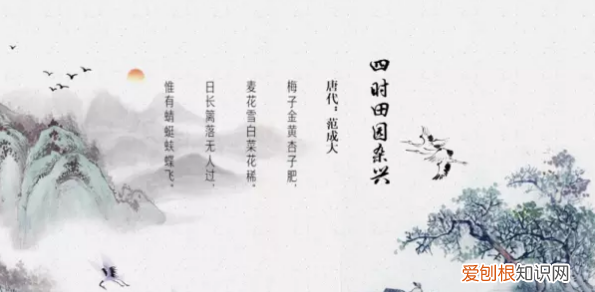 四时田园杂兴
唐代：范成大
梅子金黄杏子肥，
麦花雪白菜花稀。
日长篱落无人过，
惟有蜻蜓蛱蝶飞。
爱刨根知识网